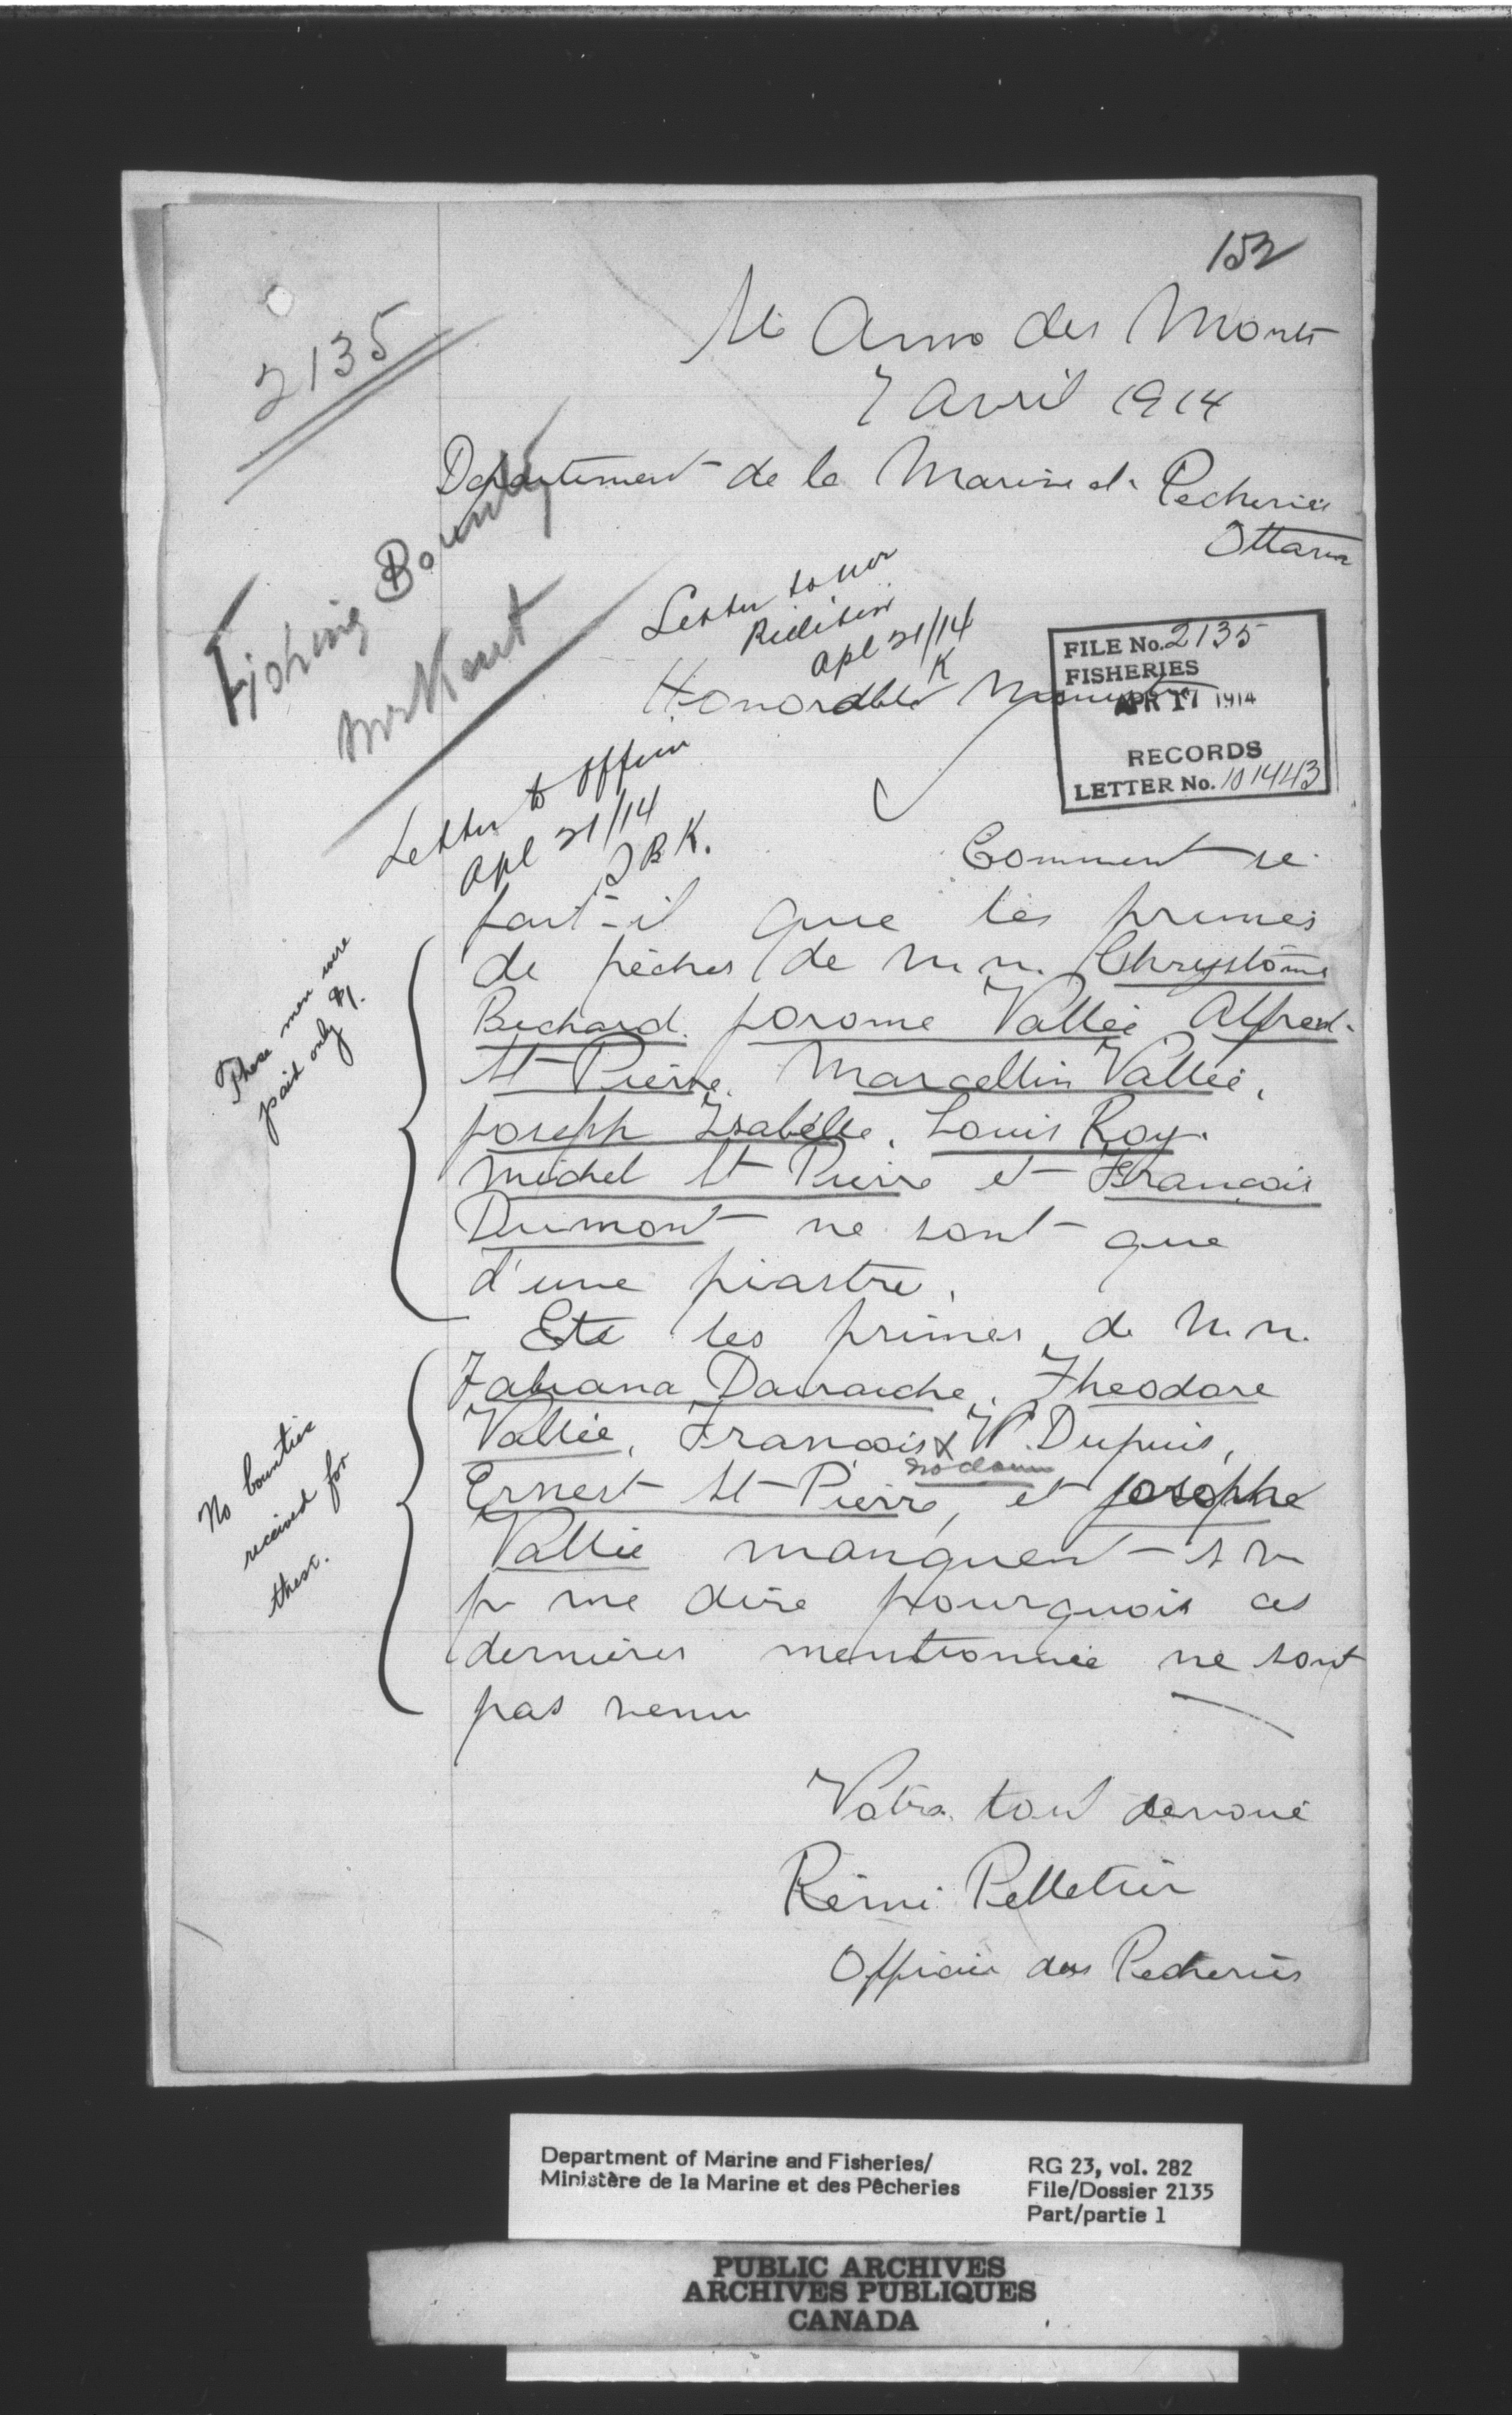 152
2135
Ste Anne des Monts
7 Avril 1914
Departement de la Marine et Pecheries
Ottawa
Fishing Bounty
Mr Kent
Letter to
Apl 21/14
K
Honorable Ministre
FILE No. 2135
FISHERIES
APR 17 1914
RECORDS
LETTER No. 101443
Letter to Officer
Apl 21/14
J B K.
Comment se
fait-il que les primes
de pêches de m.m. Chrystôme
Bechard. Jorome Vallée Alfred
St Pierre. Marcellin Vallée,
Joseph Isabelle, Louis Roy.
Michel St Pierre et François
Dumont ne sont que
d'une piastre.
These men were
paid only $1.
Ete les primes de M.M.
Fabiana Davraiche, Theodore
Vallée, Francois X Vt Dupuis,
no claim
Ernest St-Pierre, et Josephe
Vallée manquent s v
p me dire pourquois ces
dernières mentionnée ne sont
pas venu
No bounties
received for
these.
Votre tout devoué
Rémi Pelletier
Officier des Pecheries
Department of Marine and Fisheries/
Ministère de la Marine et des Pêcheries
RG 23, vol. 282
File/Dossier 2135
Part/partie 1
PUBLIC ARCHIVES
ARCHIVES PUBLIQUES
CANADA